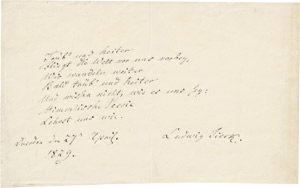 Trüb' und heiter
Fliegt die Welt vor uns vorbey,
Wir wandeln weiter
Bald trüb' und heiter
Und nicht, wie es uns sey:
Himmlische Poesie
Lehrt uns wie.
Dresden den 27 April. Ludwig Tieck.
1829.